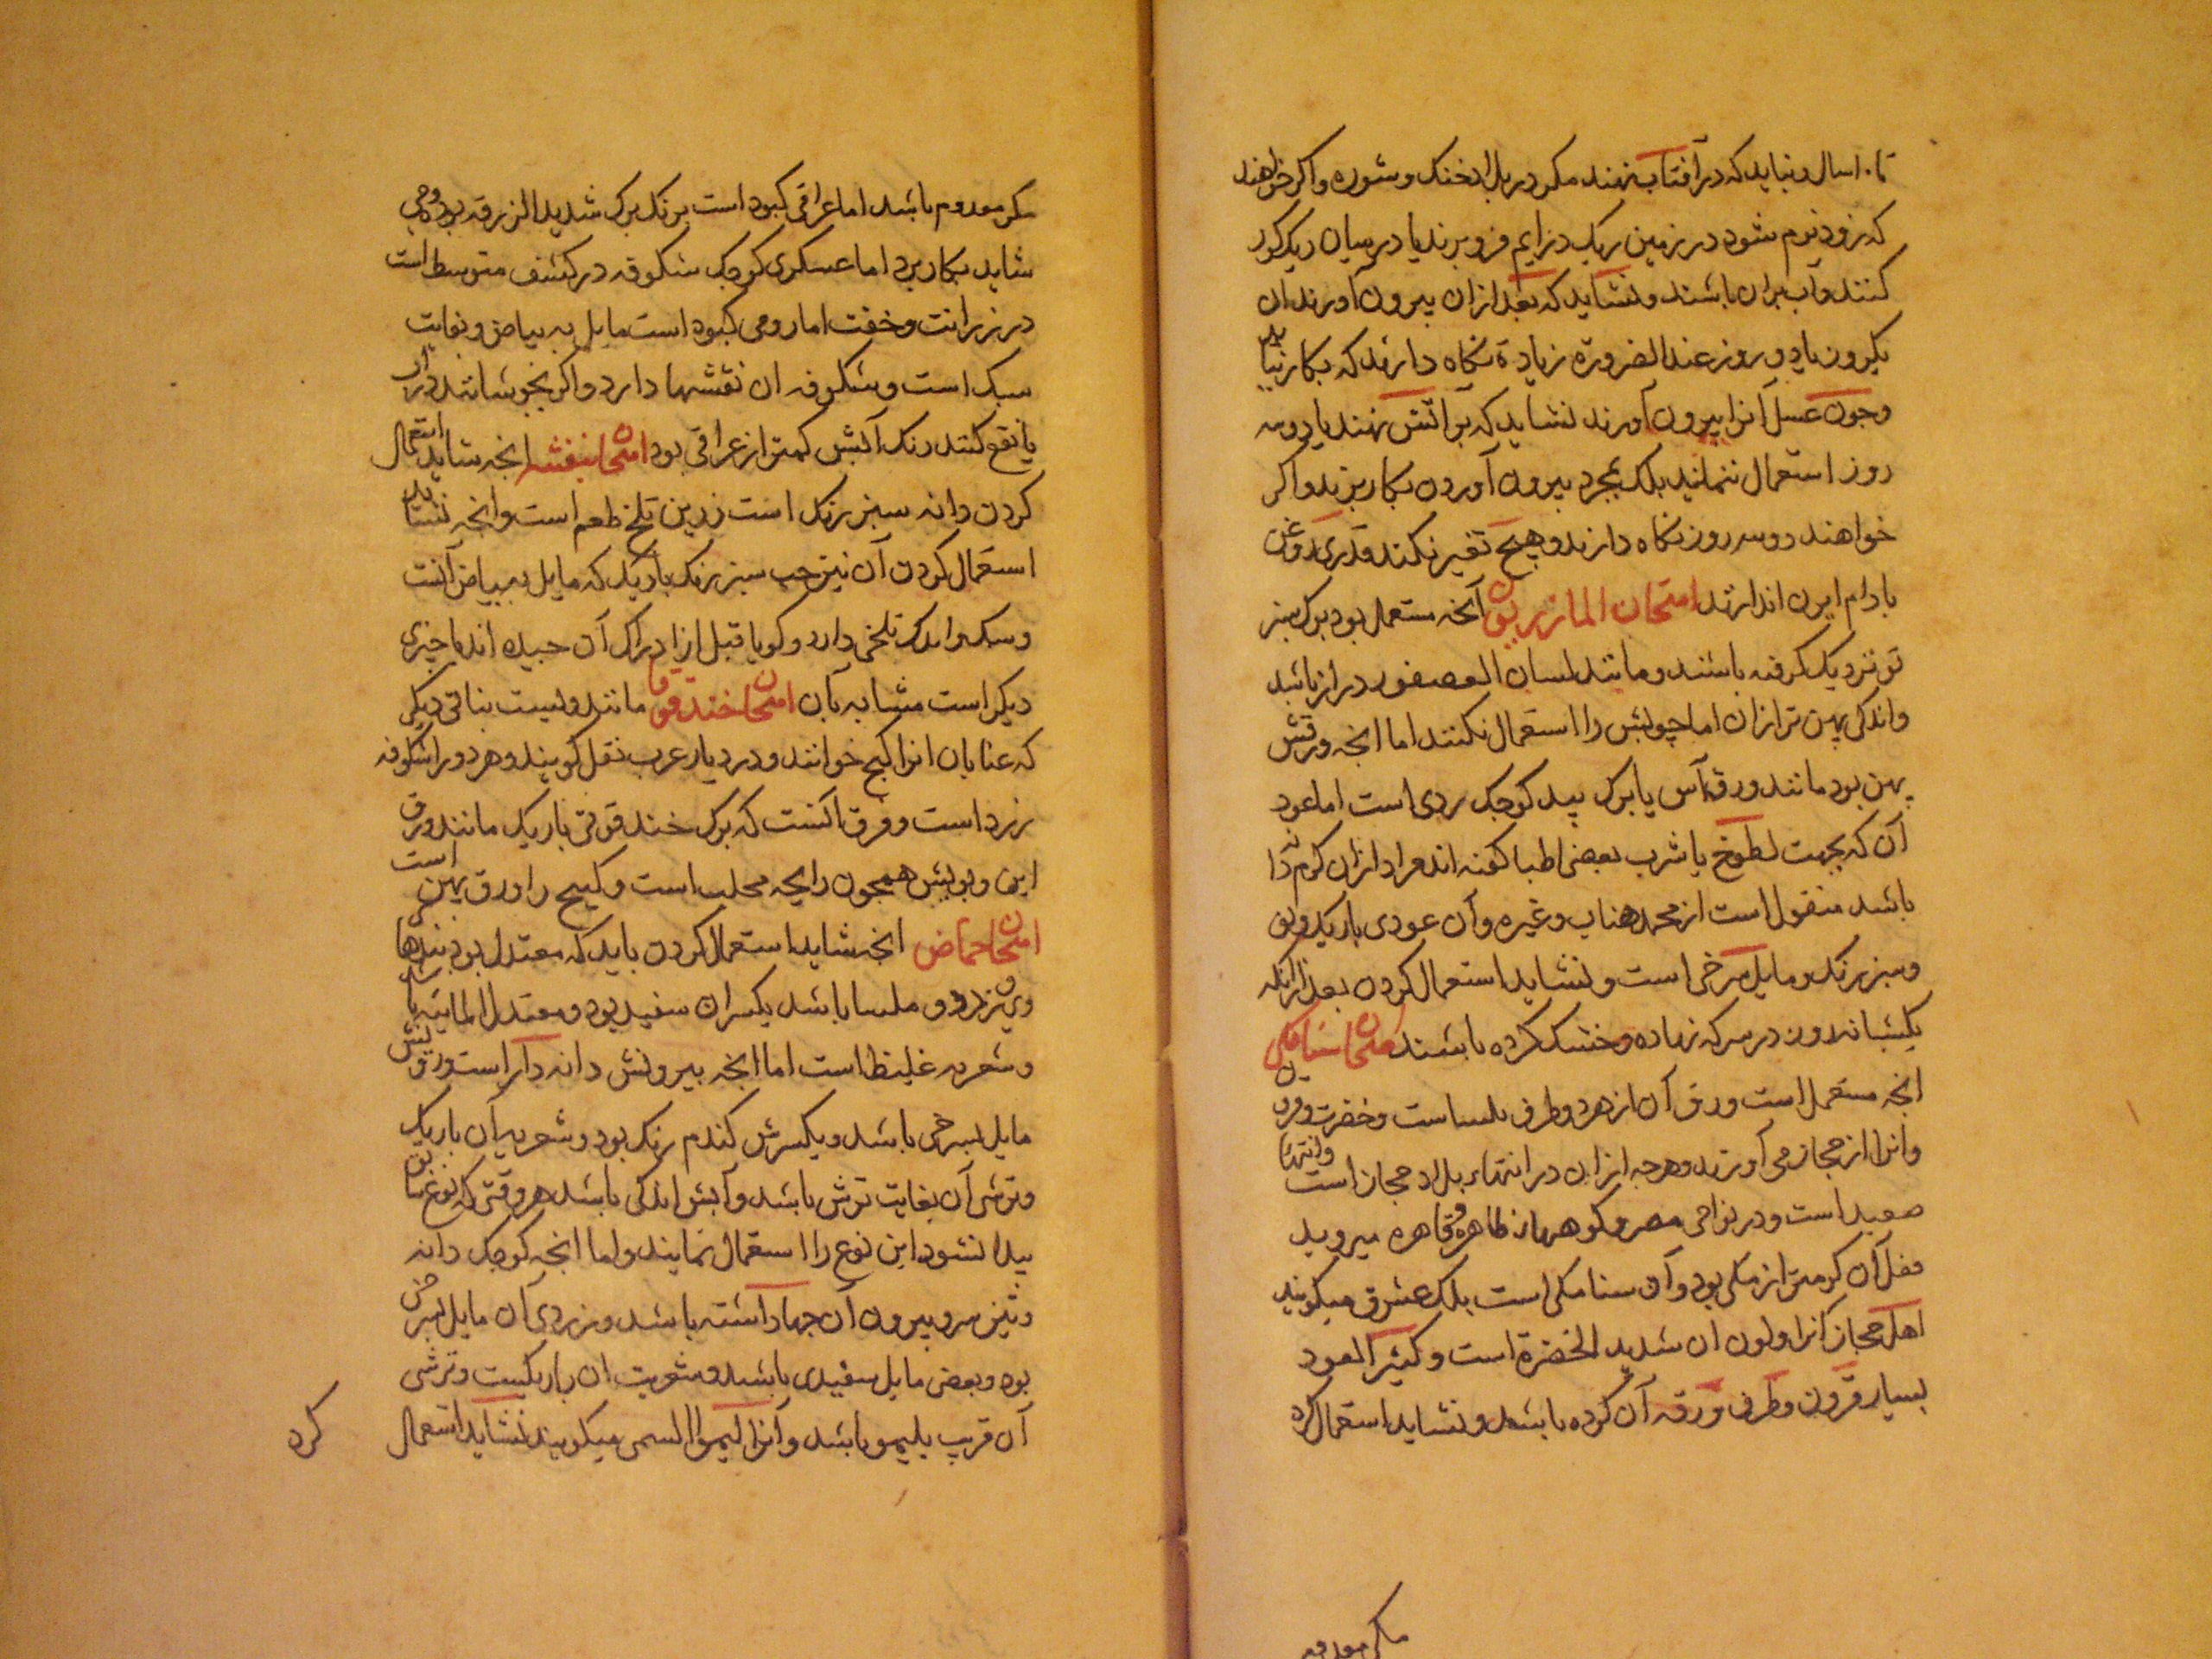 تا ۱۰ سال و نباید که در آفتاب نهند مکر در بلاد خنک و شوره و اکر خواهند
که زود نرم شود در زمین ریک در ایم فرو برند یا در میان ریک کور
کنند و آب بران باشند و نشاید که بعد از ان بیرون آورند ان
بکیرون یاد و روز عند الضرورة زیادة نکاه دارند که بکار نیاید
وجون عسل آنرا بیرون آورند نشاید که بر آتش نهند یا دو سه
روز استعمال ننمایند بلک بمجرد بیرون آوردن بکار برند و اکر
خواهند دو سه روز نکاه دارند و هیچ تغیر نکند قدری روغن
بادام ایرن اندازند امتحان المازریون آنجه مستعمل بود برک سبز
تو نزدیک کرفته باشند و مانند لسان العصفور دراز باشد
واندکی پهن تر ازان اما چوبش را استعمال نکنند اما انجه ورقش
پهن بود مانند ورق آس یا برک بید کوجک ردی است اما عود
آن که بجهت لطوخ یا شرب بعضی اطبا کفته اند مراد ازان کرم دانه
باشد منقول است از محمد هناب وغیره وآن عودی باریک وبی
وسبز رنک و مایل سرخی است و نشاید استعمال کردن بعد ازانکه
یکشبانه روز در سرکه نهاده و خشک کرده باشند امتحان سنامکی
انجه مستعمل است ورق آن از هر دو طرف ملساست وخضرت
وانرا از حجاز می آورند وهرجه ازان در انتهاء بلاد حجاز است وانتهاء
صعید است و در نواحی مصر و کوهها از ظاهره قاهره میروید
فعل آن کرمتر از مکی بود و آن سنا مکی است بلک عشرق میکویند
اهل حجاز آنرا ولون ان شدید الخضرة است و کثیر العود
بسیار قرون وطرف ورقه آن کرده باشد و نشاید استعمال کرد
مکر معدوم
مکر معدوم باشد اما عراقی کبود است برنک برک شدید الزرقه بود ومی
شاید بکار برد اما عسکری کوجک شکوفه در کشف متوسط است
در زرانت وخفت اما رومی کبود است مایل به بیاض و بغایت
سبک است و شکوفه ان نقشها دارد و اکر بجوشانند در آب
یا نقع کنند رنک آبش کمتر از عراقی بود امتحان بنفشه انجه شاید استعمال
کردن دانه سبز رنک است رزین تلخ طعم است وانجه نشاید
استعمال کردن آن نیز حب سبز رنک باریک که مایل به بیاض آنست
وسبک واندک تلخی دارد و کویا قبل از ادراک آن جیده اند یا جیزی
دیکر است مشابه بآن امتحان خندقوقا مانند ونیست بناتی دیکر
که عنابان انرا کیج خوانند و در دیار عرب نفل کویند وهر دو را شکوفه
زرد است و فرق آنست که برک خندقوقی باریک مانند ورق
این وبویش همجون رایحه محلب است و کیج را ورق پهن است
امتحان حماض انجه شاید استعمال کردن باید که معتدل بود
وی زرد و ملسا باشد یکسران سفید بود و معتدل المائیه باشد
وشعریه غلیظ است اما انجه بیرونش دانه دار است
مایل بسرخی باشد ویکسرش کندم رنک بود وشعریه آن باریک
وترشی آن بغایت ترش باشد وآبش اندکی باشد هر وقتی که نوع
پیدا نشود این نوع را استعمال نمایند واما انجه کوجک دانه
وتیز سر و بیرون آن جهاد داشته باشد وزردی آن مایل بسرخی
بود وبعضی مایل سفیدی باشد و شعریت ان باریکست وترشی
آن قریب بلیمو باشد وآنرا لیموا السمی میکویند نشاید استعمال
کرد